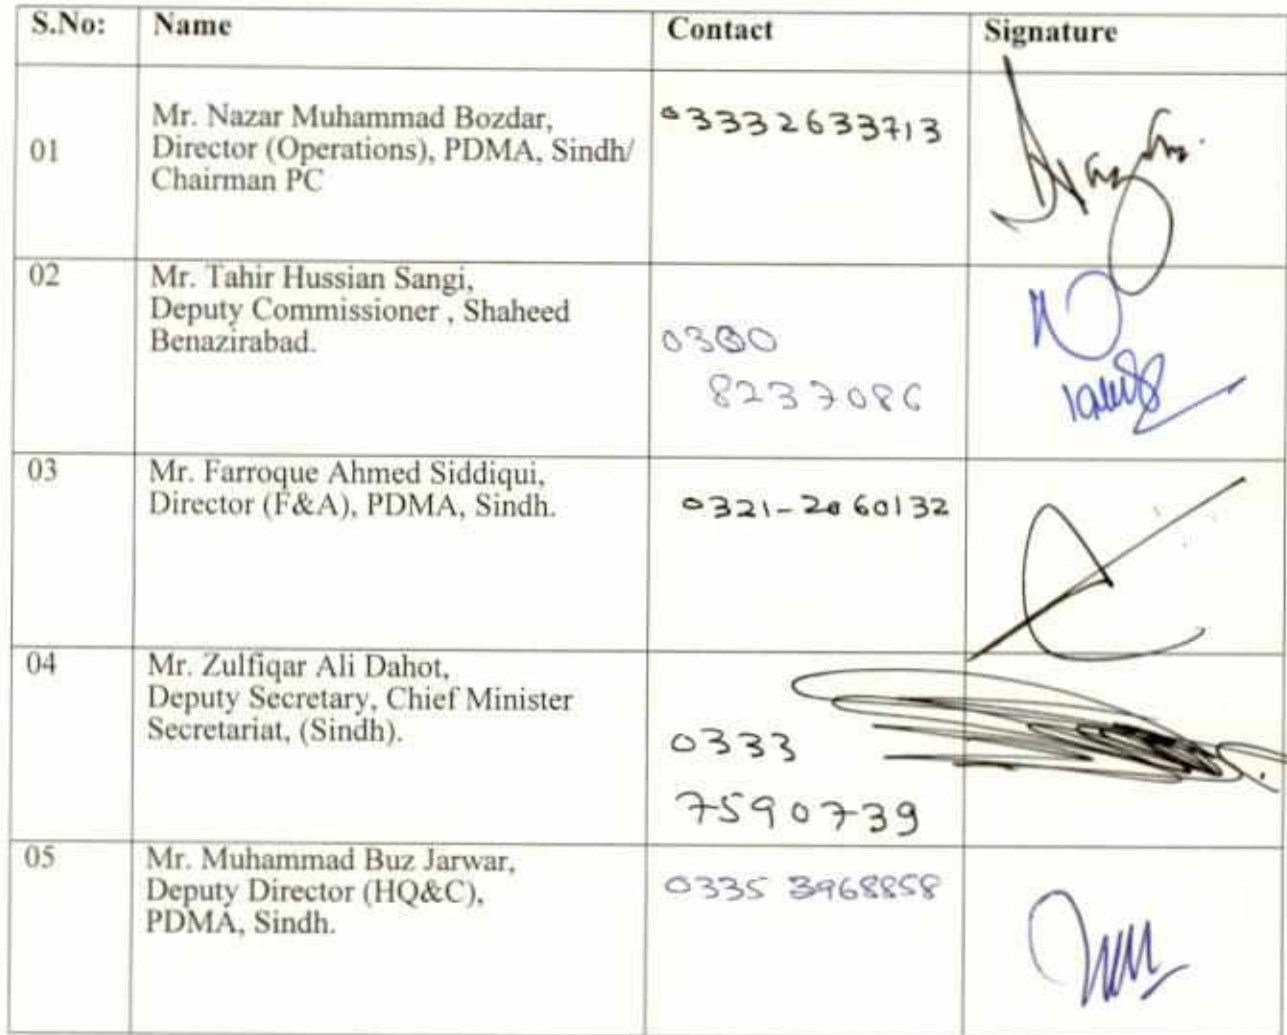 S.No: Name Contact Signature
01
Mr. Nazar Muhammad Bozdar,
Director (Operations), PDMA, Sindh/
Chairman PC
03332633713
02
Mr. Tahir Hussian Sangi,
Deputy Commissioner , Shaheed
Benazirabad.
0300
8237086
03
Mr. Farroque Ahmed Siddiqui,
Director (F&A), PDMA, Sindh.
0321-2060132
04
Mr. Zulfiqar Ali Dahot,
Deputy Secretary, Chief Minister
Secretariat, (Sindh).
0333
7590739
05
Mr. Muhammad Buz Jarwar,
Deputy Director (HQ&C),
PDMA, Sindh.
0335 3968858